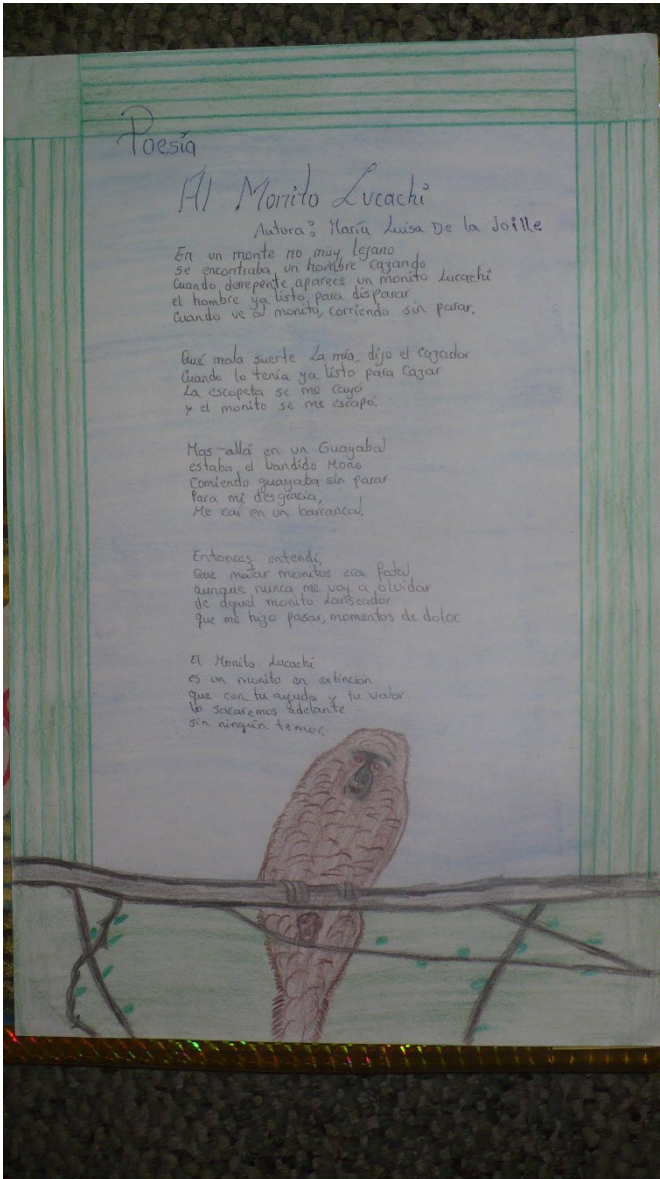 Poesía
Al Monito Lucachi
Autora: María Luisa De la Joille
En un monte no muy lejano
se encontraba un hombre cazando
Cuando derepente aparece un monito Lucachi
el hombre ya listo para disparar
Cuando ve al monito, corriendo sin parar.
Qué mala suerte La mía, dijo el cazador
Cuando lo tenía ya listo para cazar
La escopeta se me cayo
y el monito se me escapo.
Mas allá en un Guayabal
estaba el bandido Mono
Comiendo guayaba sin parar
Para mi desgracia,
Me caí en un barrancal.
Entonces entendí,
Que matar monitos era fatal
aunque nunca me voy a olvidar
de aquel monito
que me hizo pasar, momentos de dolor.
El Monito Lucachi
es un monito en extinción
que con tu ayuda y tu valor
lo sacaremos adelante
sin ningún temor.